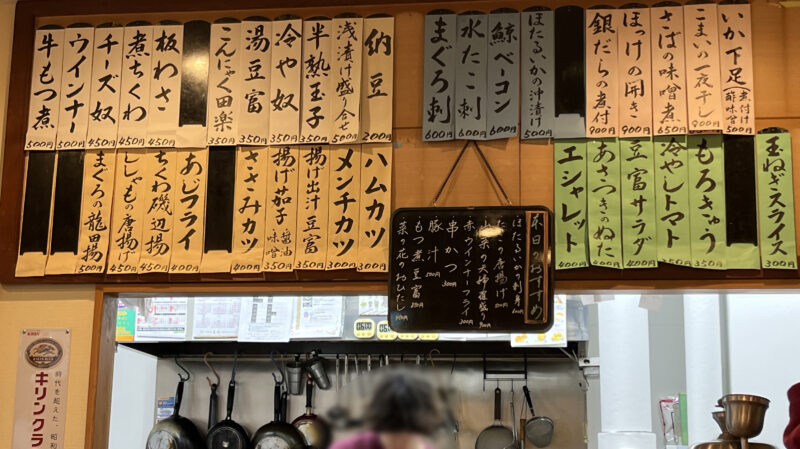 納豆 200円
浅漬け盛り合せ 350円
半熟玉子 350円
冷や奴 350円
湯豆富 350円
こんにゃく田楽 350円
板わさ 450円
煮ちくわ 450円
チーズ奴 400円
ウインナー 500円
牛もつ煮 500円
ハムカツ
メンチカツ
揚げ出汁豆富
揚げ茄子 醤油 味噌
ささみカツ
あじフライ 400円
ちくわ磯辺揚 450円
ししゃもの唐揚げ 450円
まぐろの竜田揚 500円
いか下足(煮付け 酢味噌 500円
こまいの一夜干し 700円
さばの味噌煮
ほっけの開き 900円
銀だらの煮付 900円
ほたるいかの沖漬け 500円
鯨ベーコン
水たこ刺 600円
まぐろ刺 600円
玉ねぎスライス 350円
もろきゅう 350円
冷やしトマト
豆富サラダ
あさつきのぬた
エシャレット
本日のおすすめ
ほたるいかの刺身
の唐揚げ
赤ウインナーフライ 300円
串かつ
豚汁
もつ煮豆富
菜の花のおひたし
KIRIN
キリンクラ
時代を超えた、昭和